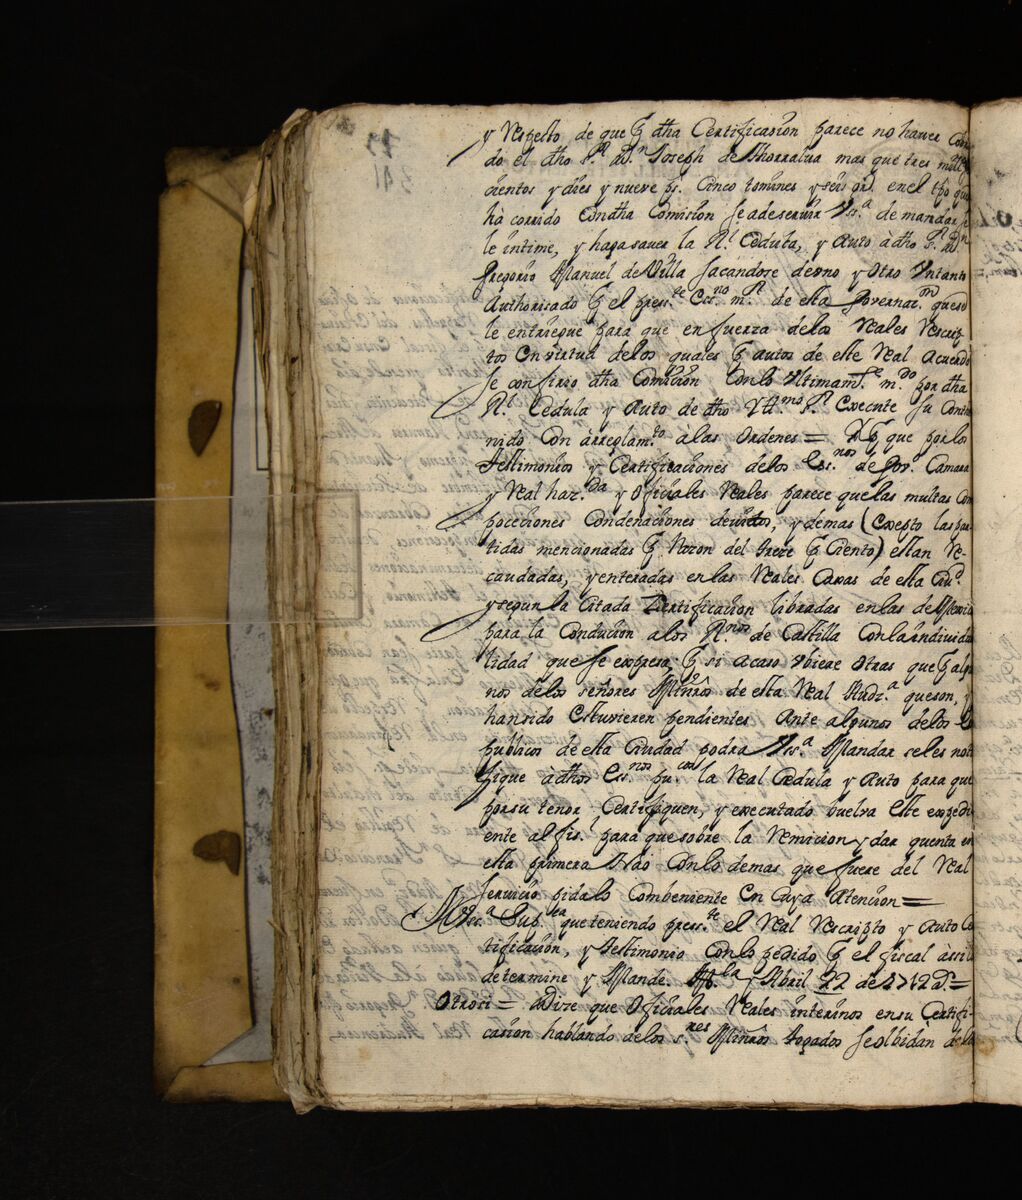 y Respecto de que p dha Certificasion parece no haver Cobra
do el dho s.r D.n Joseph de thorralva mas que tres mill
cientos y dies y nueve ps. Cinco tomines y seis gr. en el tpo que
ha corrido Con dha Comision se a de servir Vss.a de mandar se
le intime, y haga saver la R.l Cedula, y Auto à dho s.r D.n
Gregorio Manuel de Villa sacandose de uno y otro Vn tanto
Authorisado p el press.te Ess.no m.r de esta Governaz.on que se
le entriegue para que en fuerza de los Reales Rescrip
tos En virtud de los quales p autos de este Real Acuerdo
se confirio dha Comision Con lo Ultimam.te m.do por dha
R.l Cedula y Auto de dho Ytt.mo s.r Execute su Conte
nido Con àrreglam.to à las ordenes = Y p que por los
testimonios y Certificaciones de los Ess.nos de Gov. Camara
y Real haz.da y Oficiales Reales parece que las multas Com
pociciones Condenaciones devitos, y demas (Exepto las par
tidas mencionadas p Razon del trese p Ciento) estan Re-
caudadas, y enteradas en las Reales Caxas de esta Ciu.d
y segun la Citada Zertificacion libradas en las de Mexico
para la Conducion a los R.nos de Castilla Con la individua
lidad que se expresa p si acaso Ubiere otras que p algu
nos de los señores Minros de esta Real Audz.a que son, y
han sido Estuvieren pendientes Ante algunos de los
publicos de esta Ciudad podra Vss.a Mandar se les noti
fique à dhos Ess.nos pu.cos la Real Cedula y Auto para que
por su tenor, Certifiquen, y executado buelva Este expedi
ente al fis.l para que sobre la Remicion y dar quenta en
esta primera Nao Con lo demas que fuere del Real
servicio pida lo Combeniente En cuya Atencion =
A Vss.a Sup.ca que teniendo press.te el Real Rescripto y Auto Ce
tificacion, y testimonio Con lo pedido p el fiscal àssi lo
determine y Mande. M.la y Abril 22 de 1712 a.s =
Otrosi = Dize que Oficiales Reales interinos en su Certifi-
cacion hablando de los s.res Minros togados se olbidàn de